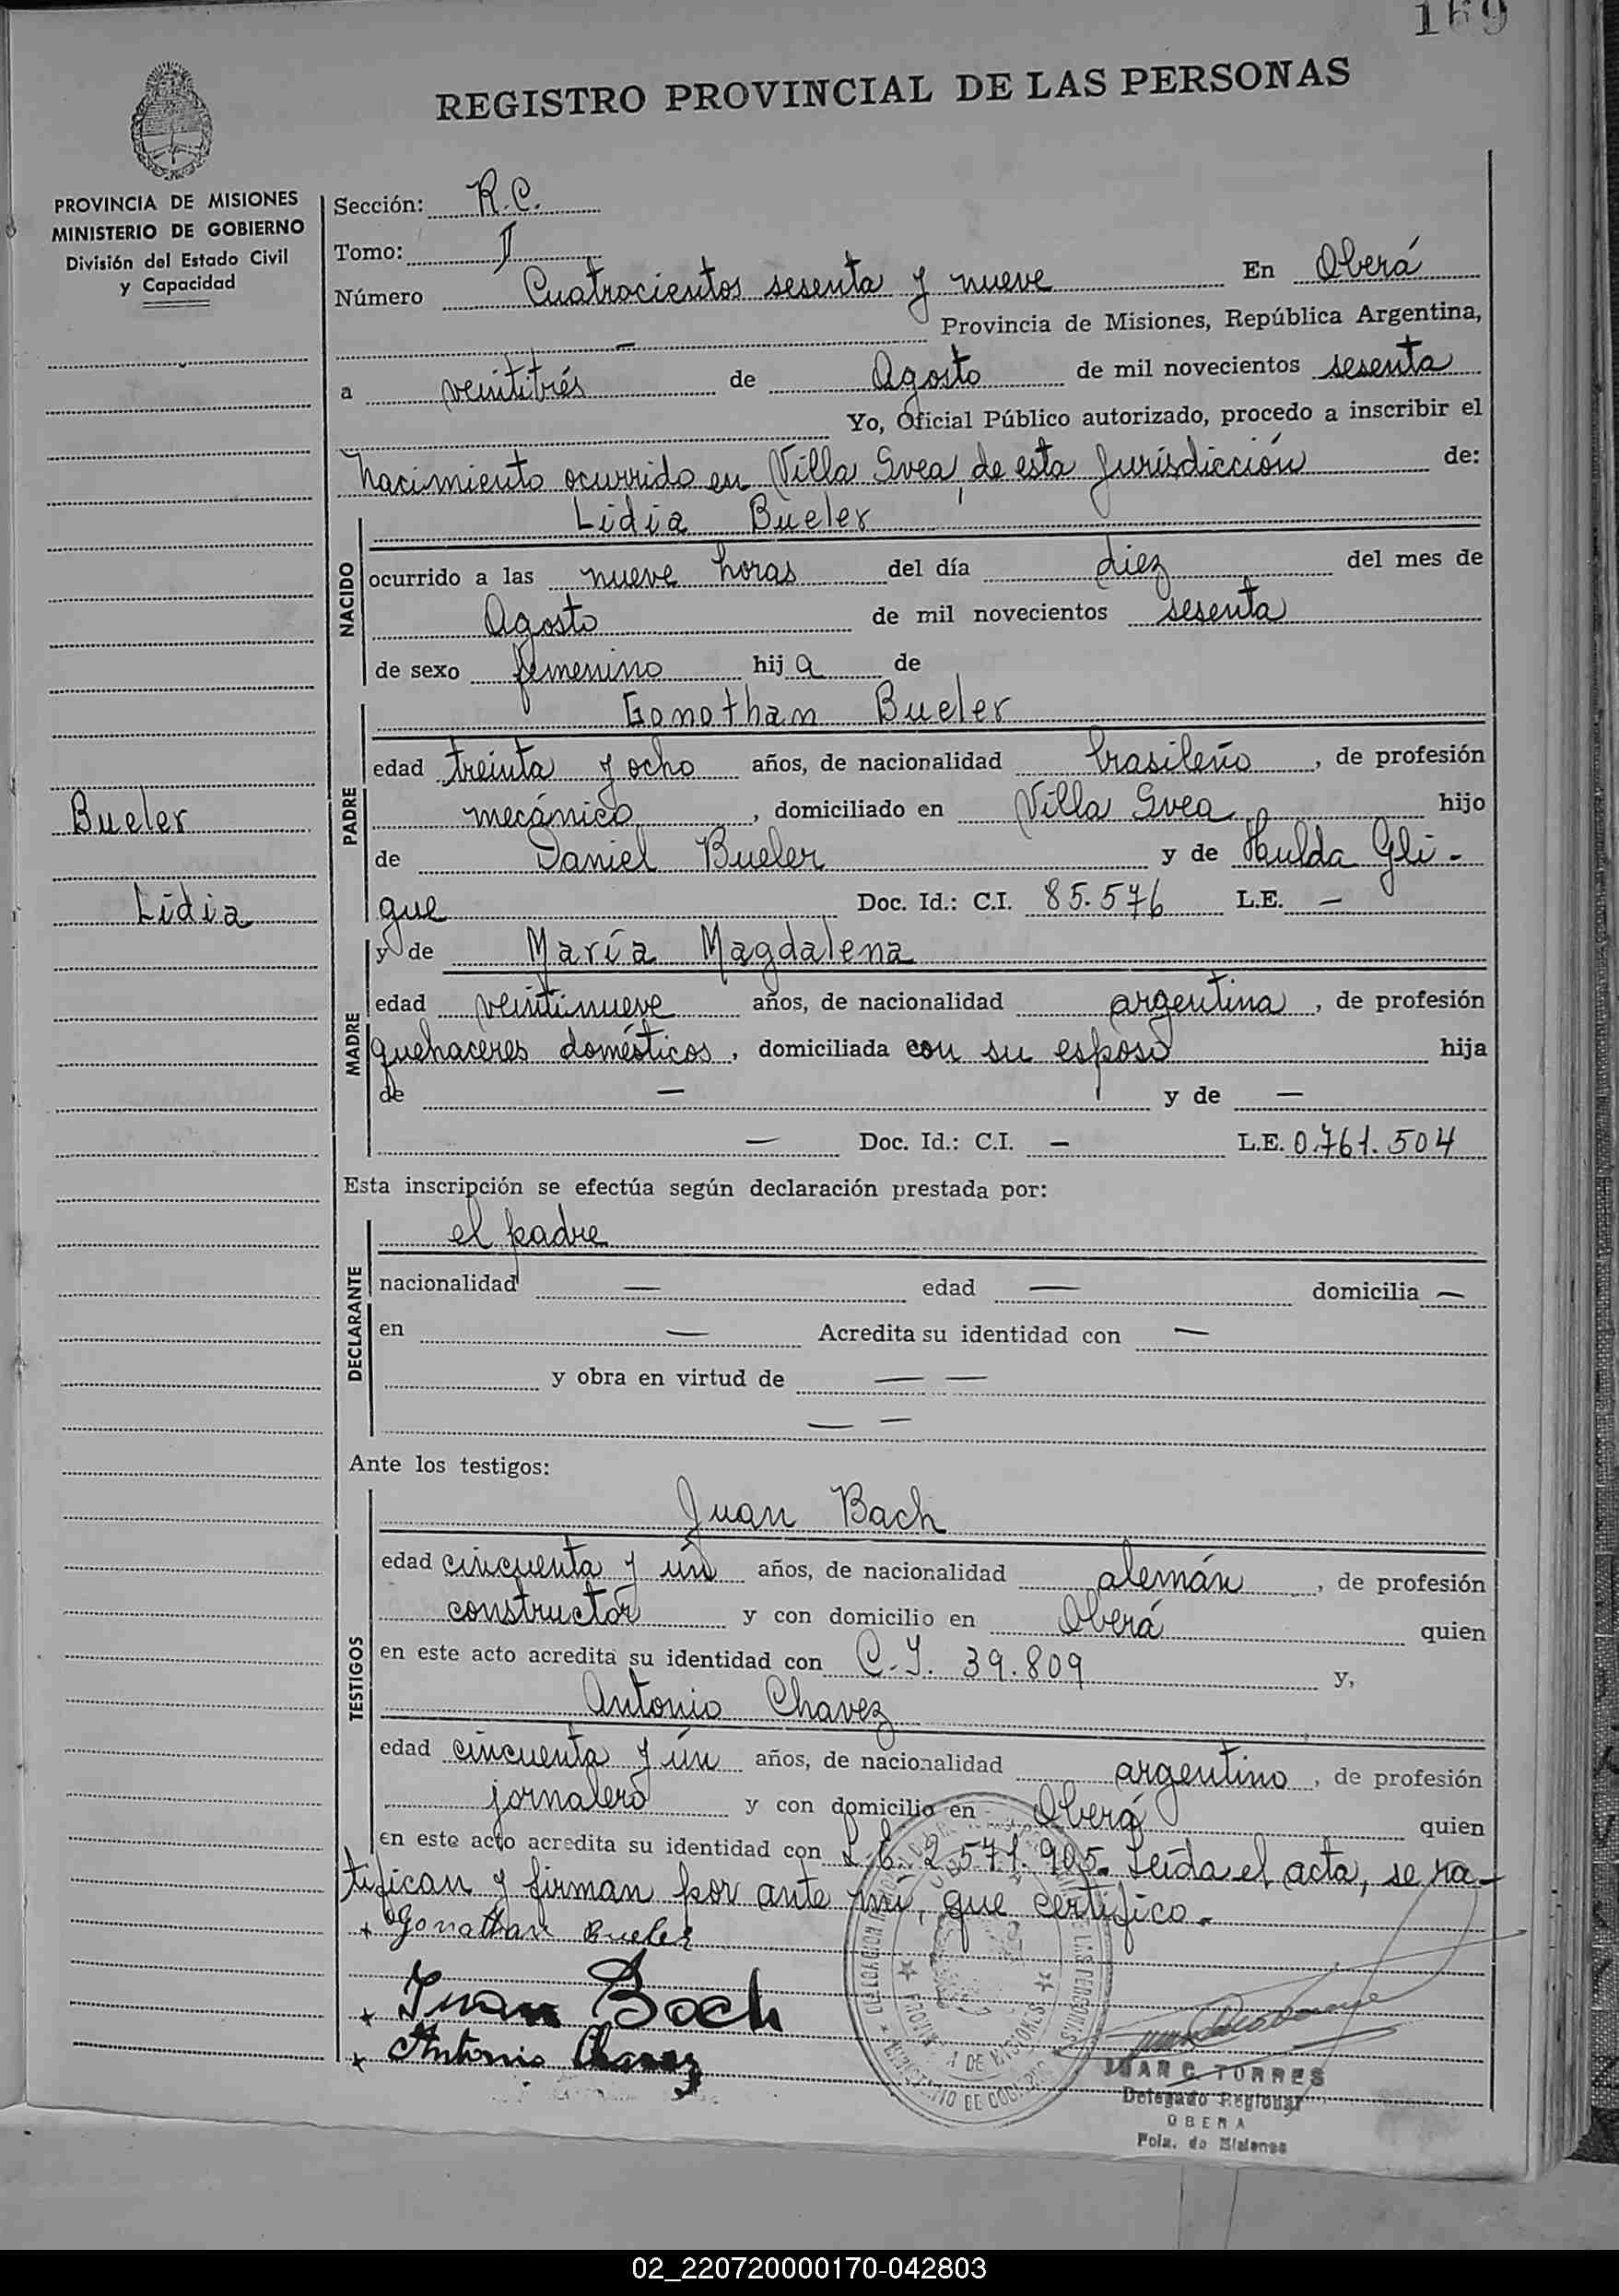 169
REGISTRO PROVINCIAL DE LAS PERSONAS
PROVINCIA DE MISIONES
MINISTERIO DE GOBIERNO
División del Estado Civil
y Capacidad
Sección: R.C.
Tomo: I
Número Cuatrocientos sesenta y nueve En Oberá
— Provincia de Misiones, República Argentina,
a veintitrés de Agosto de mil novecientos sesenta
Yo, Oficial Público autorizado, procedo a inscribir el
nacimiento ocurrido en Villa Svea, de esta Jurisdicción de:
NACIDO
Lidia Bueler
ocurrido a las nueve horas del día diez del mes de
Agosto de mil novecientos sesenta
de sexo femenino hija de
PADRE
Gonothan Bueler
edad treinta y ocho años, de nacionalidad brasileño, de profesión
mecánico, domiciliado en Villa Svea hijo
de Daniel Bueler y de Hulda Gli-
gue Doc. Id.: C.I. 85.576 L.E. —
Bueler
Lidia
MADRE
y de María Magdalena
edad veintinueve años, de nacionalidad argentina, de profesión
quehaceres domésticos, domiciliada con su esposo hija
de — y de —
— Doc. Id.: C.I. — L.E. 0.761.504
Esta inscripción se efectúa según declaración prestada por:
DECLARANTE
el padre
nacionalidad — edad — domicilia —
en — Acredita su identidad con —
y obra en virtud de — —
— —
Ante los testigos:
TESTIGOS
Juan Bach
edad cincuenta y ún años, de nacionalidad alemán, de profesión
constructor y con domicilio en Oberá quien
en este acto acredita su identidad con C.I. 39.809 y,
Antonio Chavez
edad cincuenta y ún años, de nacionalidad argentino, de profesión
jornalero y con domicilio en Oberá quien
en este acto acredita su identidad con L.E. 2.571.905. Leída el acta, se ra-
tifican y firman por ante mí, que certifico.-
+ Gonathan Bueler
+ Juan Bach
+ Antonio Chavez
JUAN C. TORRES
Delegado Regional
OBERA
Pcia. de Misiones
02_220720000170-042803